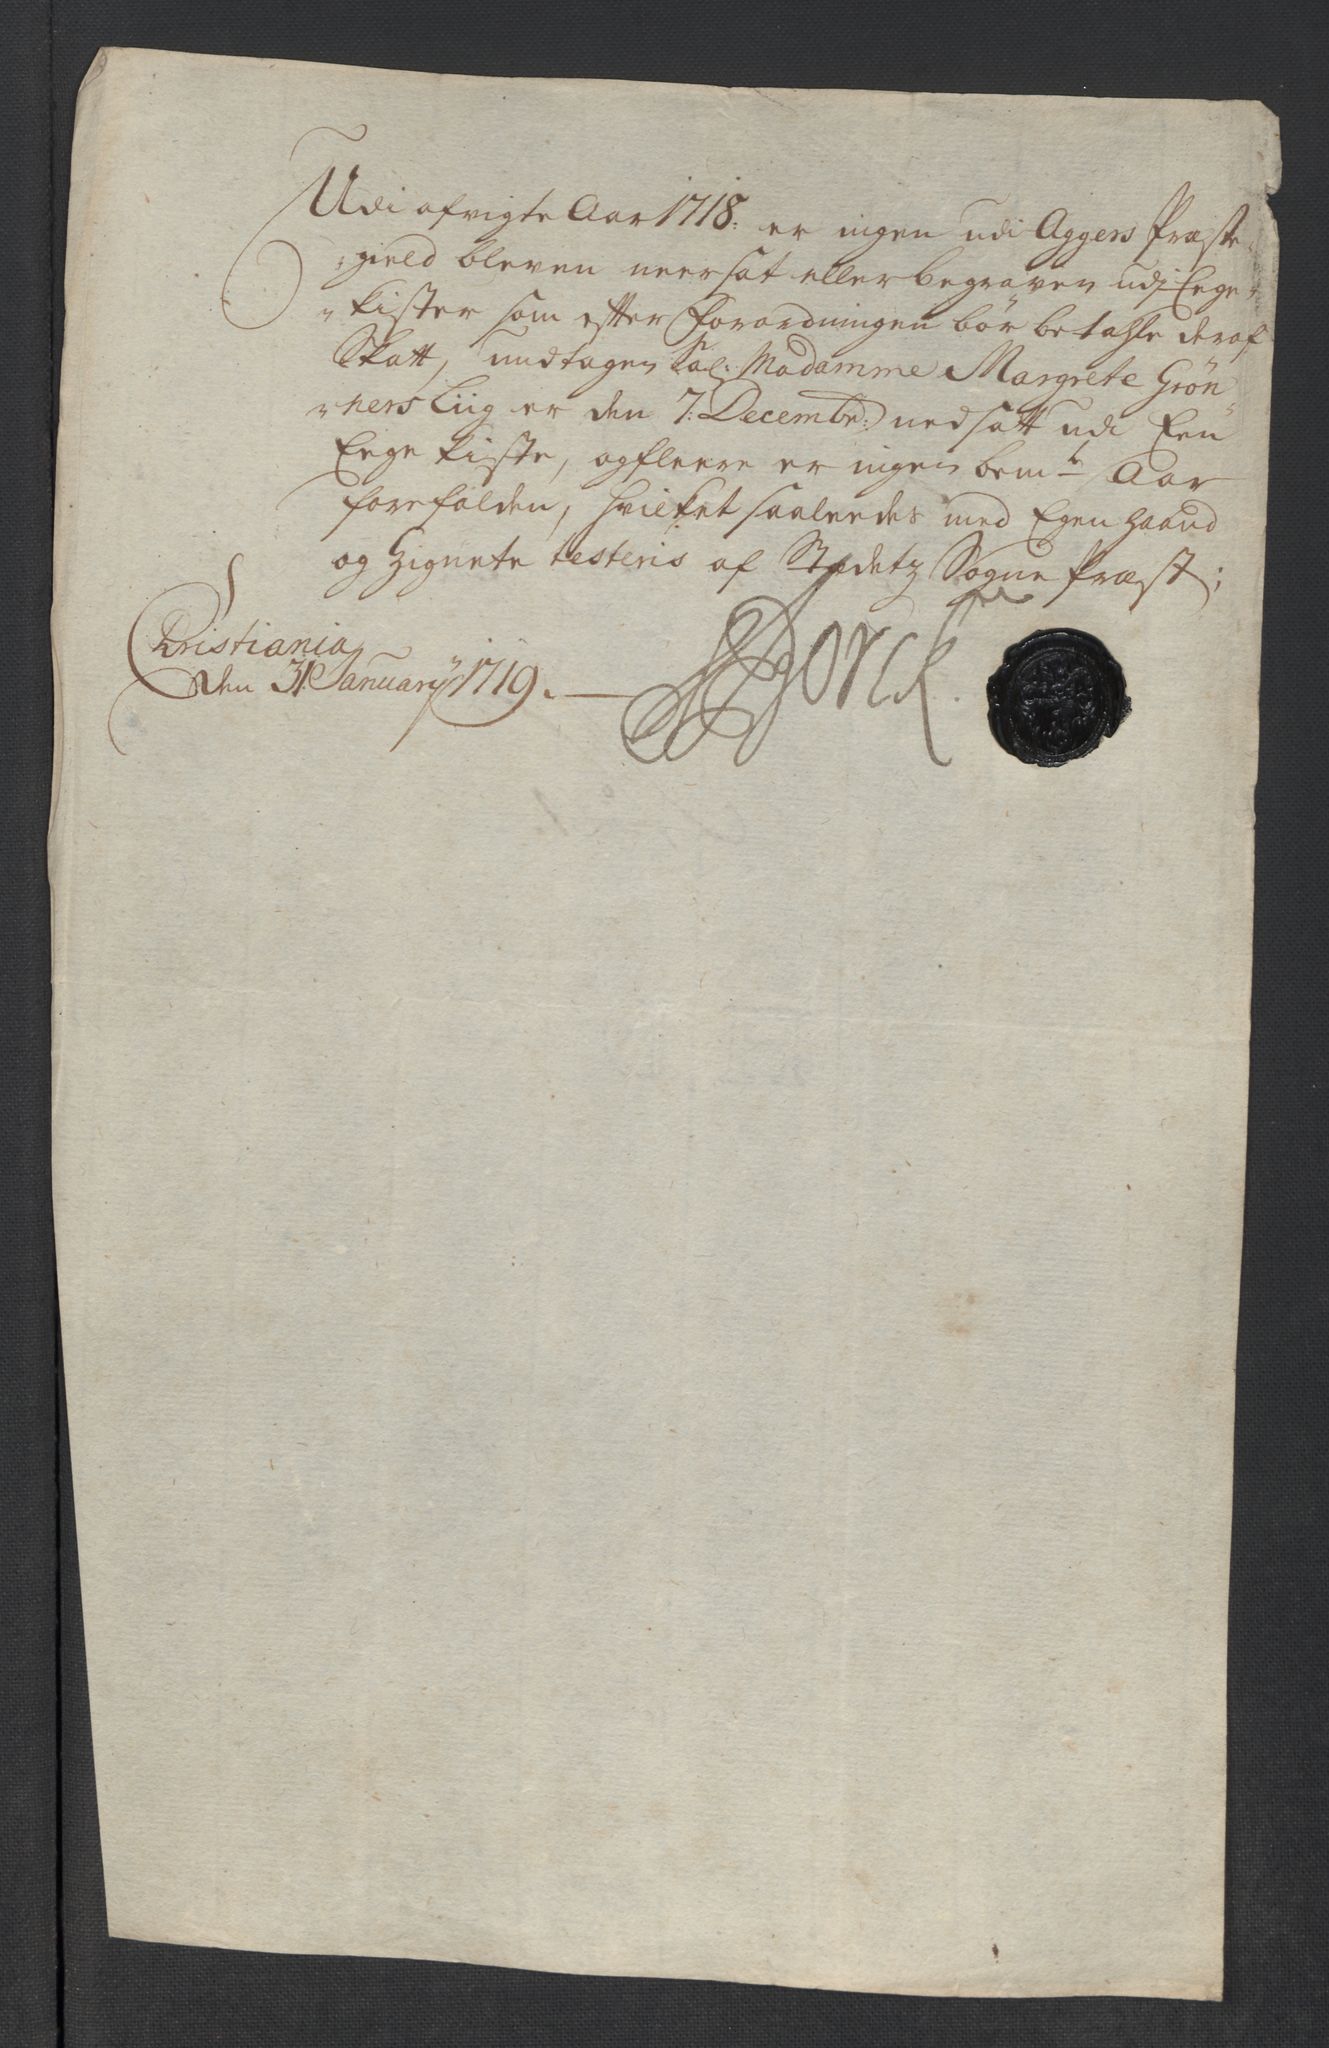 Udi afvigte Aar 1718: er ingen udi Aggers Præste„
„gield bleven neersat eller begraven udj Eege„
„kister som efter Forordningen bör betahle deraf
Skatt, undtagen Sal: Madamme Margrete Grön„
„ners Liig er den 7: Decembr: nedsatt udi Een
Eege kiste, og fleere er ingen bemte Aar
forefalden, hvilket saaleedes med Egen haand
og Zignete testeris af Stedetz Sogne Præst;
Christiania
den 31 January 1719.